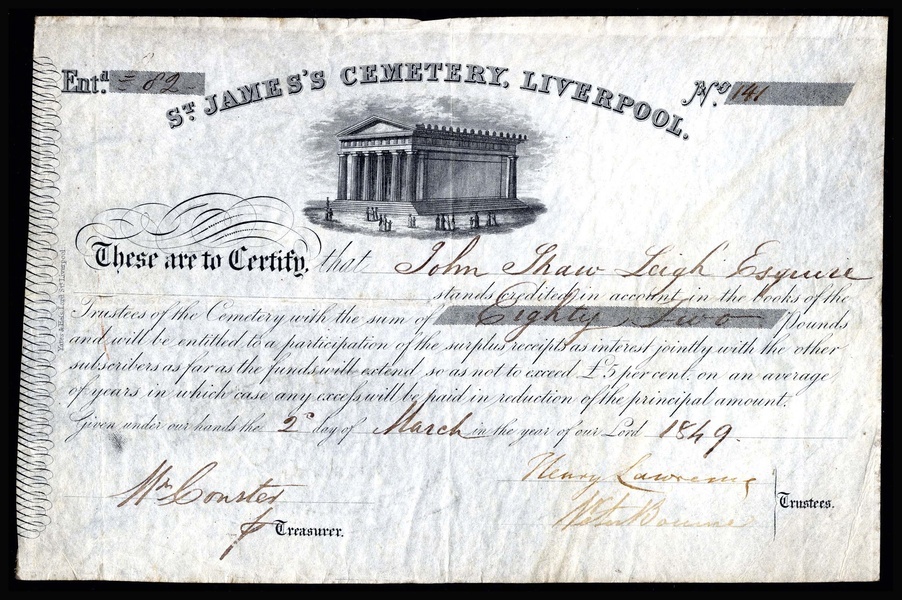 Entd. = 82 -
No 141
ST JAMES'S CEMETERY, LIVERPOOL.
These are to Certify, that John Shaw Leigh Esquire
stands credited in account in the books of the
Trustees of the Cemetery with the sum of Eighty Two Pounds
and will be entitled to a participation of the surplus receipts as interest jointly with the other
subscribers as far as the funds will extend so as not to exceed £5 per cent. on an average
of years in which case any excess will be paid in reduction of the principal amount.
Given under our hands the 2d day of March in the year of our Lord 1849.
Henry Lawrence
Trustees.
Treasurer.